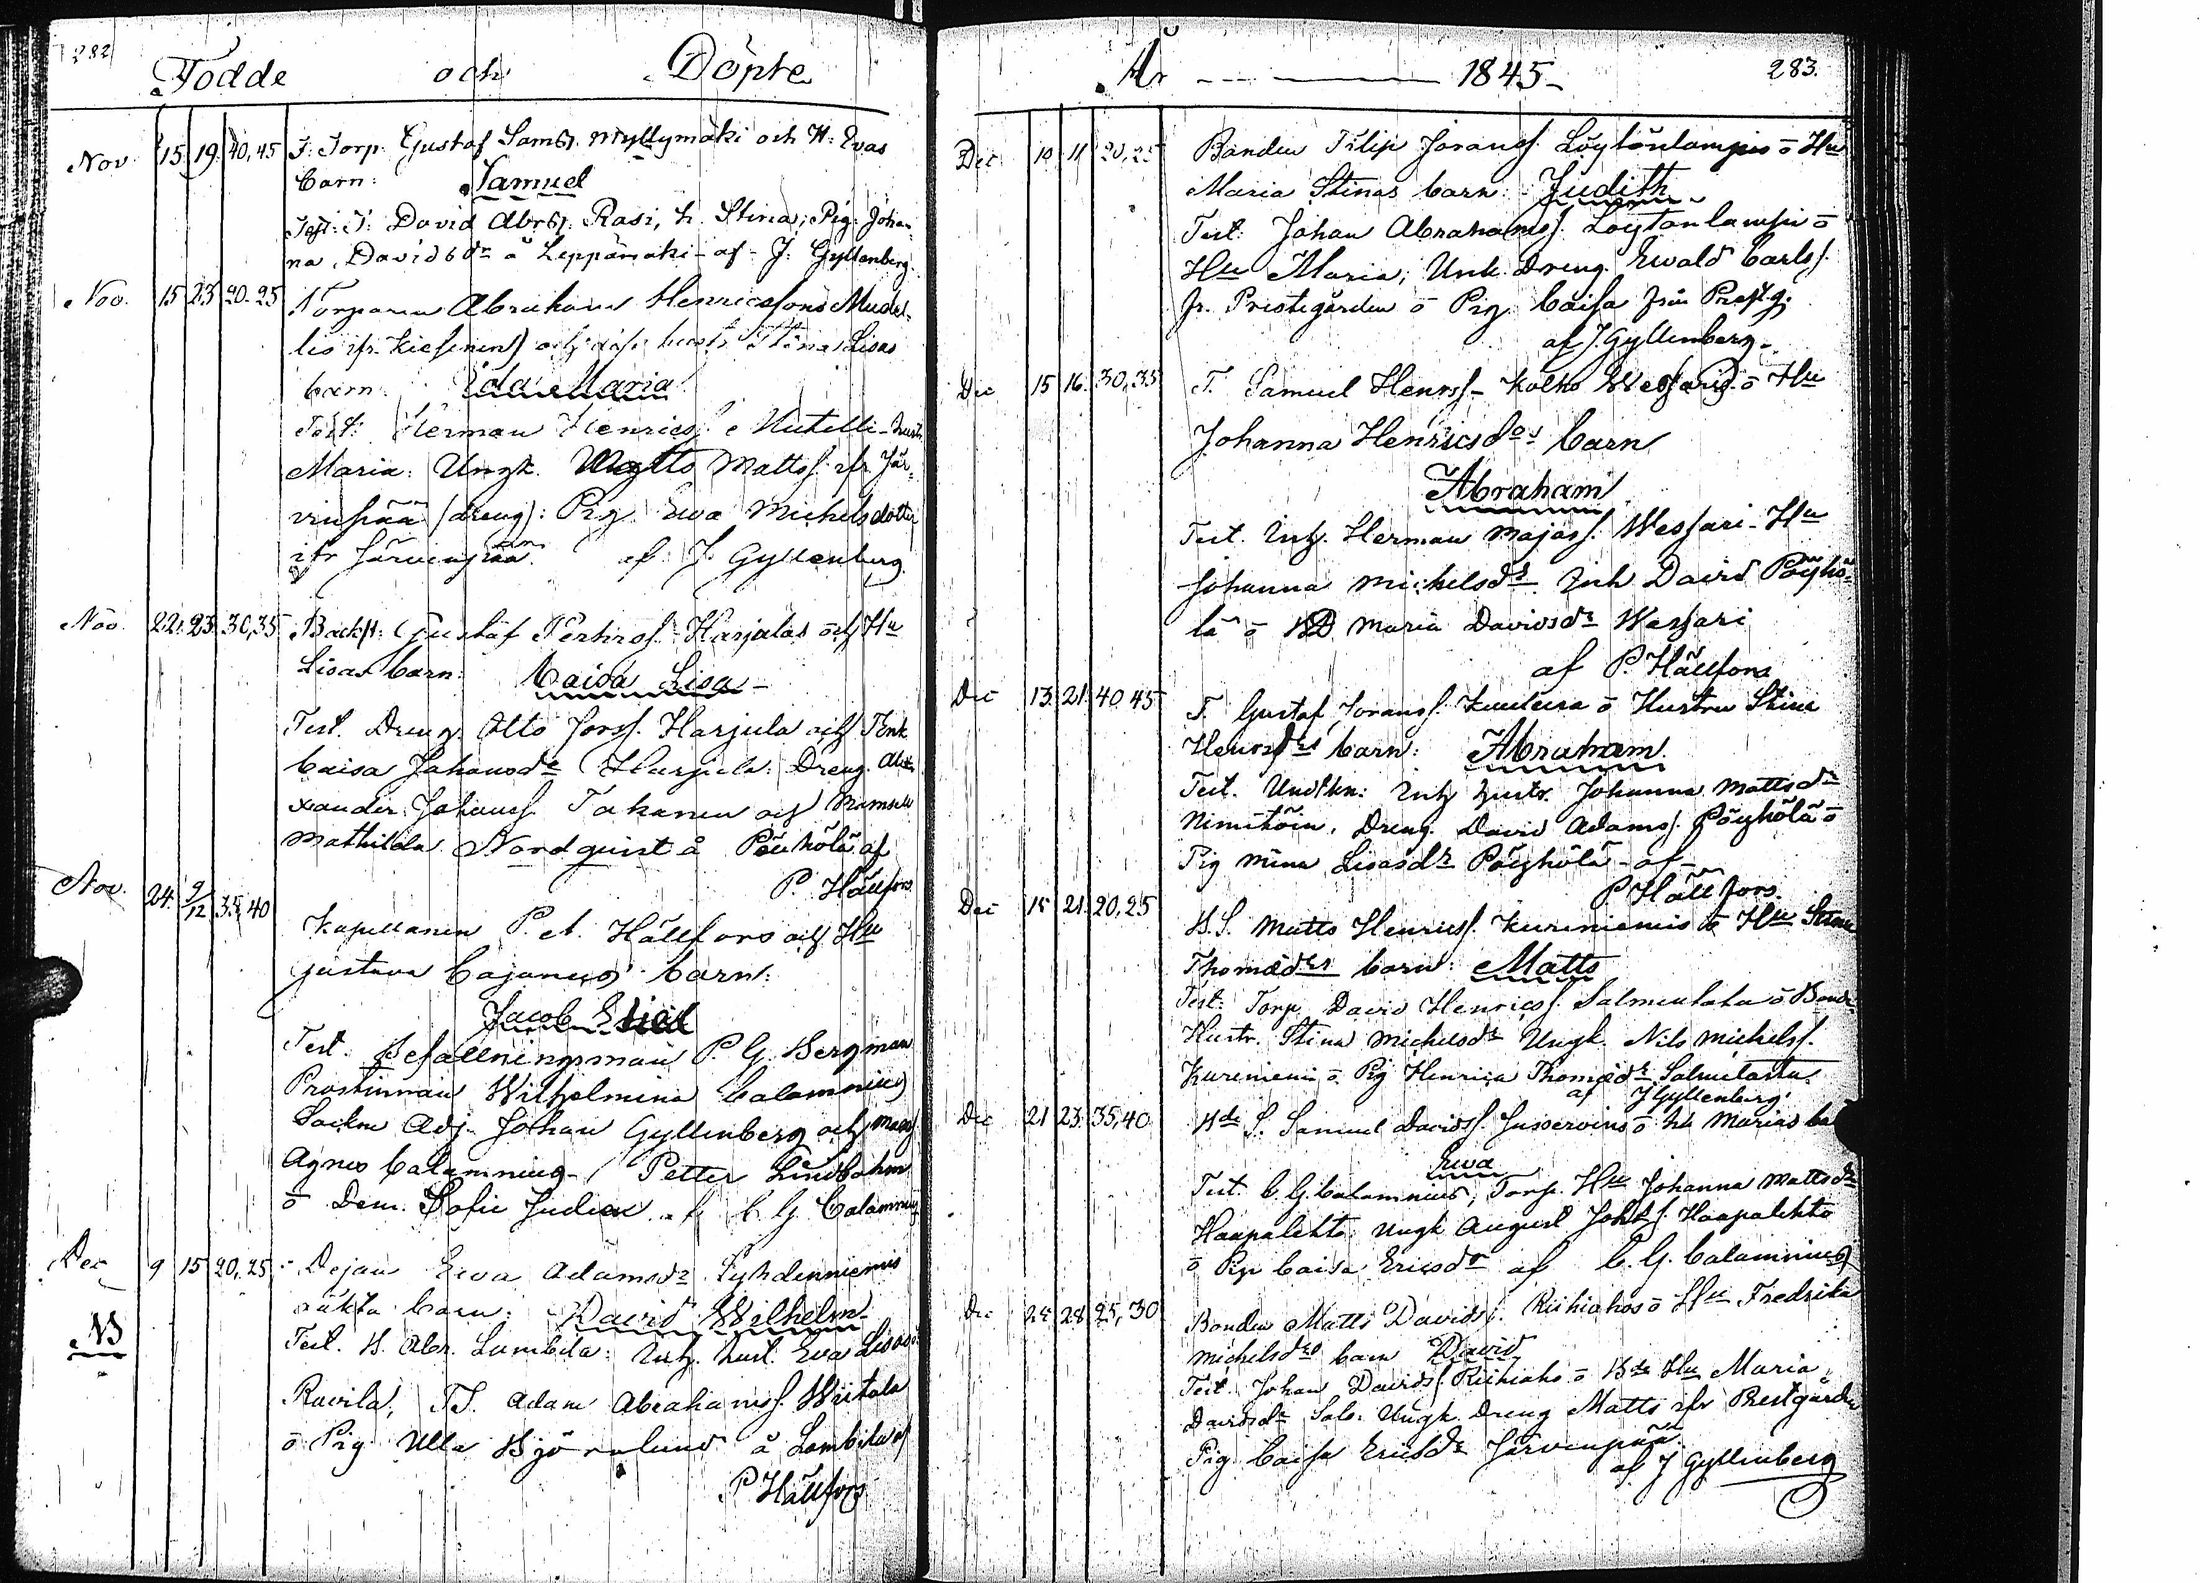 282
Födde och Döpte
Nov 15 19 40,45 I: Torp. Gustaf Samss. Myllymäki och H: Evas
barn: Samuel
Test: I: David Abrss. Rasi, h. Stina; Pig: Johan-
na Davidsdr å Leppämäki - af - J. Gyllenberg.
Nov. 15 23 20-25 Torparen Abraham Henricssons
barn: Ida Maria
Test: Herman Henricss. hustr.
Maria: Ungk. Matts Mattss. ifr Jär-
vinpää (dreng): Pig Ewa Michelsdotter
ifr Järvenpää af J. Gyllenberg
Nov. 22. 23. 30,35 Backst: Gustaf Harjulas och Hu
Lisas barn: Caisa Lisa -
Test. Dreng Otto Harjula och Enk
Caisa Johansdr Harjula: Dreng. Alex-
xander Johanss. Takanen och Mamsell
Mathilda Nordquist å Pöyhölä af
P. Hällfors
Nov. 24. 9/12 35,40 Kapellanen P. A. Hällfors och Hu
Gustava Cajanus barn:
Jacob
Test. Befallningsman P. G. Bergman
Prostinnan Wilhelmina Calamnius
Sockne Adj. Johan Gyllenberg och
Agnes Calamnius - Petter Lindbohm
ō Dem. Sofie af C. G. Calamnius
Dec 9 15 20,25 - Pejan Ewa Adamsdr
oäkta barn: David Wilhelm -
NB
Test. B. Abr. Lambila: Inh. hust. Eva
Ravila, TS. Adam Abrahamss. Wiitala
ō Pig Ulla Björnlund å Lambila af
P Hällfors
År - 1845 - 283.
Dec 10 11 20,25 Bonden Filip Göranss. Löytönlampis ō Hu
Maria Stinas barn: Judith
Test: Johan Abrahamss. Löytönlampi ō
Hu Maria; Unk. Dreng. Ewald Carlss.
fr. Prestegården ō Pig. Caisa från Prestg.
af J. Gyllenberg -
Dec 15 16. 30,35 T. Samuel Henrss - Kolho Wessaris ō Hu
Johanna Henricsdrs barn
Abraham
Test. Inh. Herman Majass. Wessari - Hu
Johanna Michelsdr. Inh David Pöyhö-
lä ō BD Maria Davidsdr Wessari
af P. Hällfors
Dec 13. 21. 40 45 T. Gustaf Göranss. ō Hustru Stina
Henrsdrs barn: Abraham
Test. Inh hustr. Johanna Mattsdr
Dreng. David Adamss. Pöyhölä ō
Pig Mina Lisasdr Pöyhölä - af -
P. Hällfors.
Dec 15 21. 20,25 B.S. Matts Henricss. Kureniemis ō Hu Stina
Thomædrs barn: Matts
Test: Torp. David Henricss. ō Bond-
Hustr. Stina Michelsdr Ungk. Nils Michelss.
Kureniemi ō Pig Henrica Thomædr
af J Gyllenberg.
Dec 21 23. 35,40 Bde S. Samuel Davidss. ō hu Marias
Ewa
Test. C. G. Calamnius, Torp. Hu Johanna Mattsdr
Haapalehto Ungk August Haapalehto
ō Pig Caisa Ericsdr af C. G. Calamnius
Dec 28 25,30 Bonden Matts Davidss. Riihiahos ō Hu Fredrika
Michelsdrs barn David
Test. Johan Davidss. Riihiaho ō Bde Hu Maria
Davidsdr Ungk. Dreng Matts ifr Prestgården
Pig. Caisa Ericsdr Järvenpää.
af J Gyllenberg